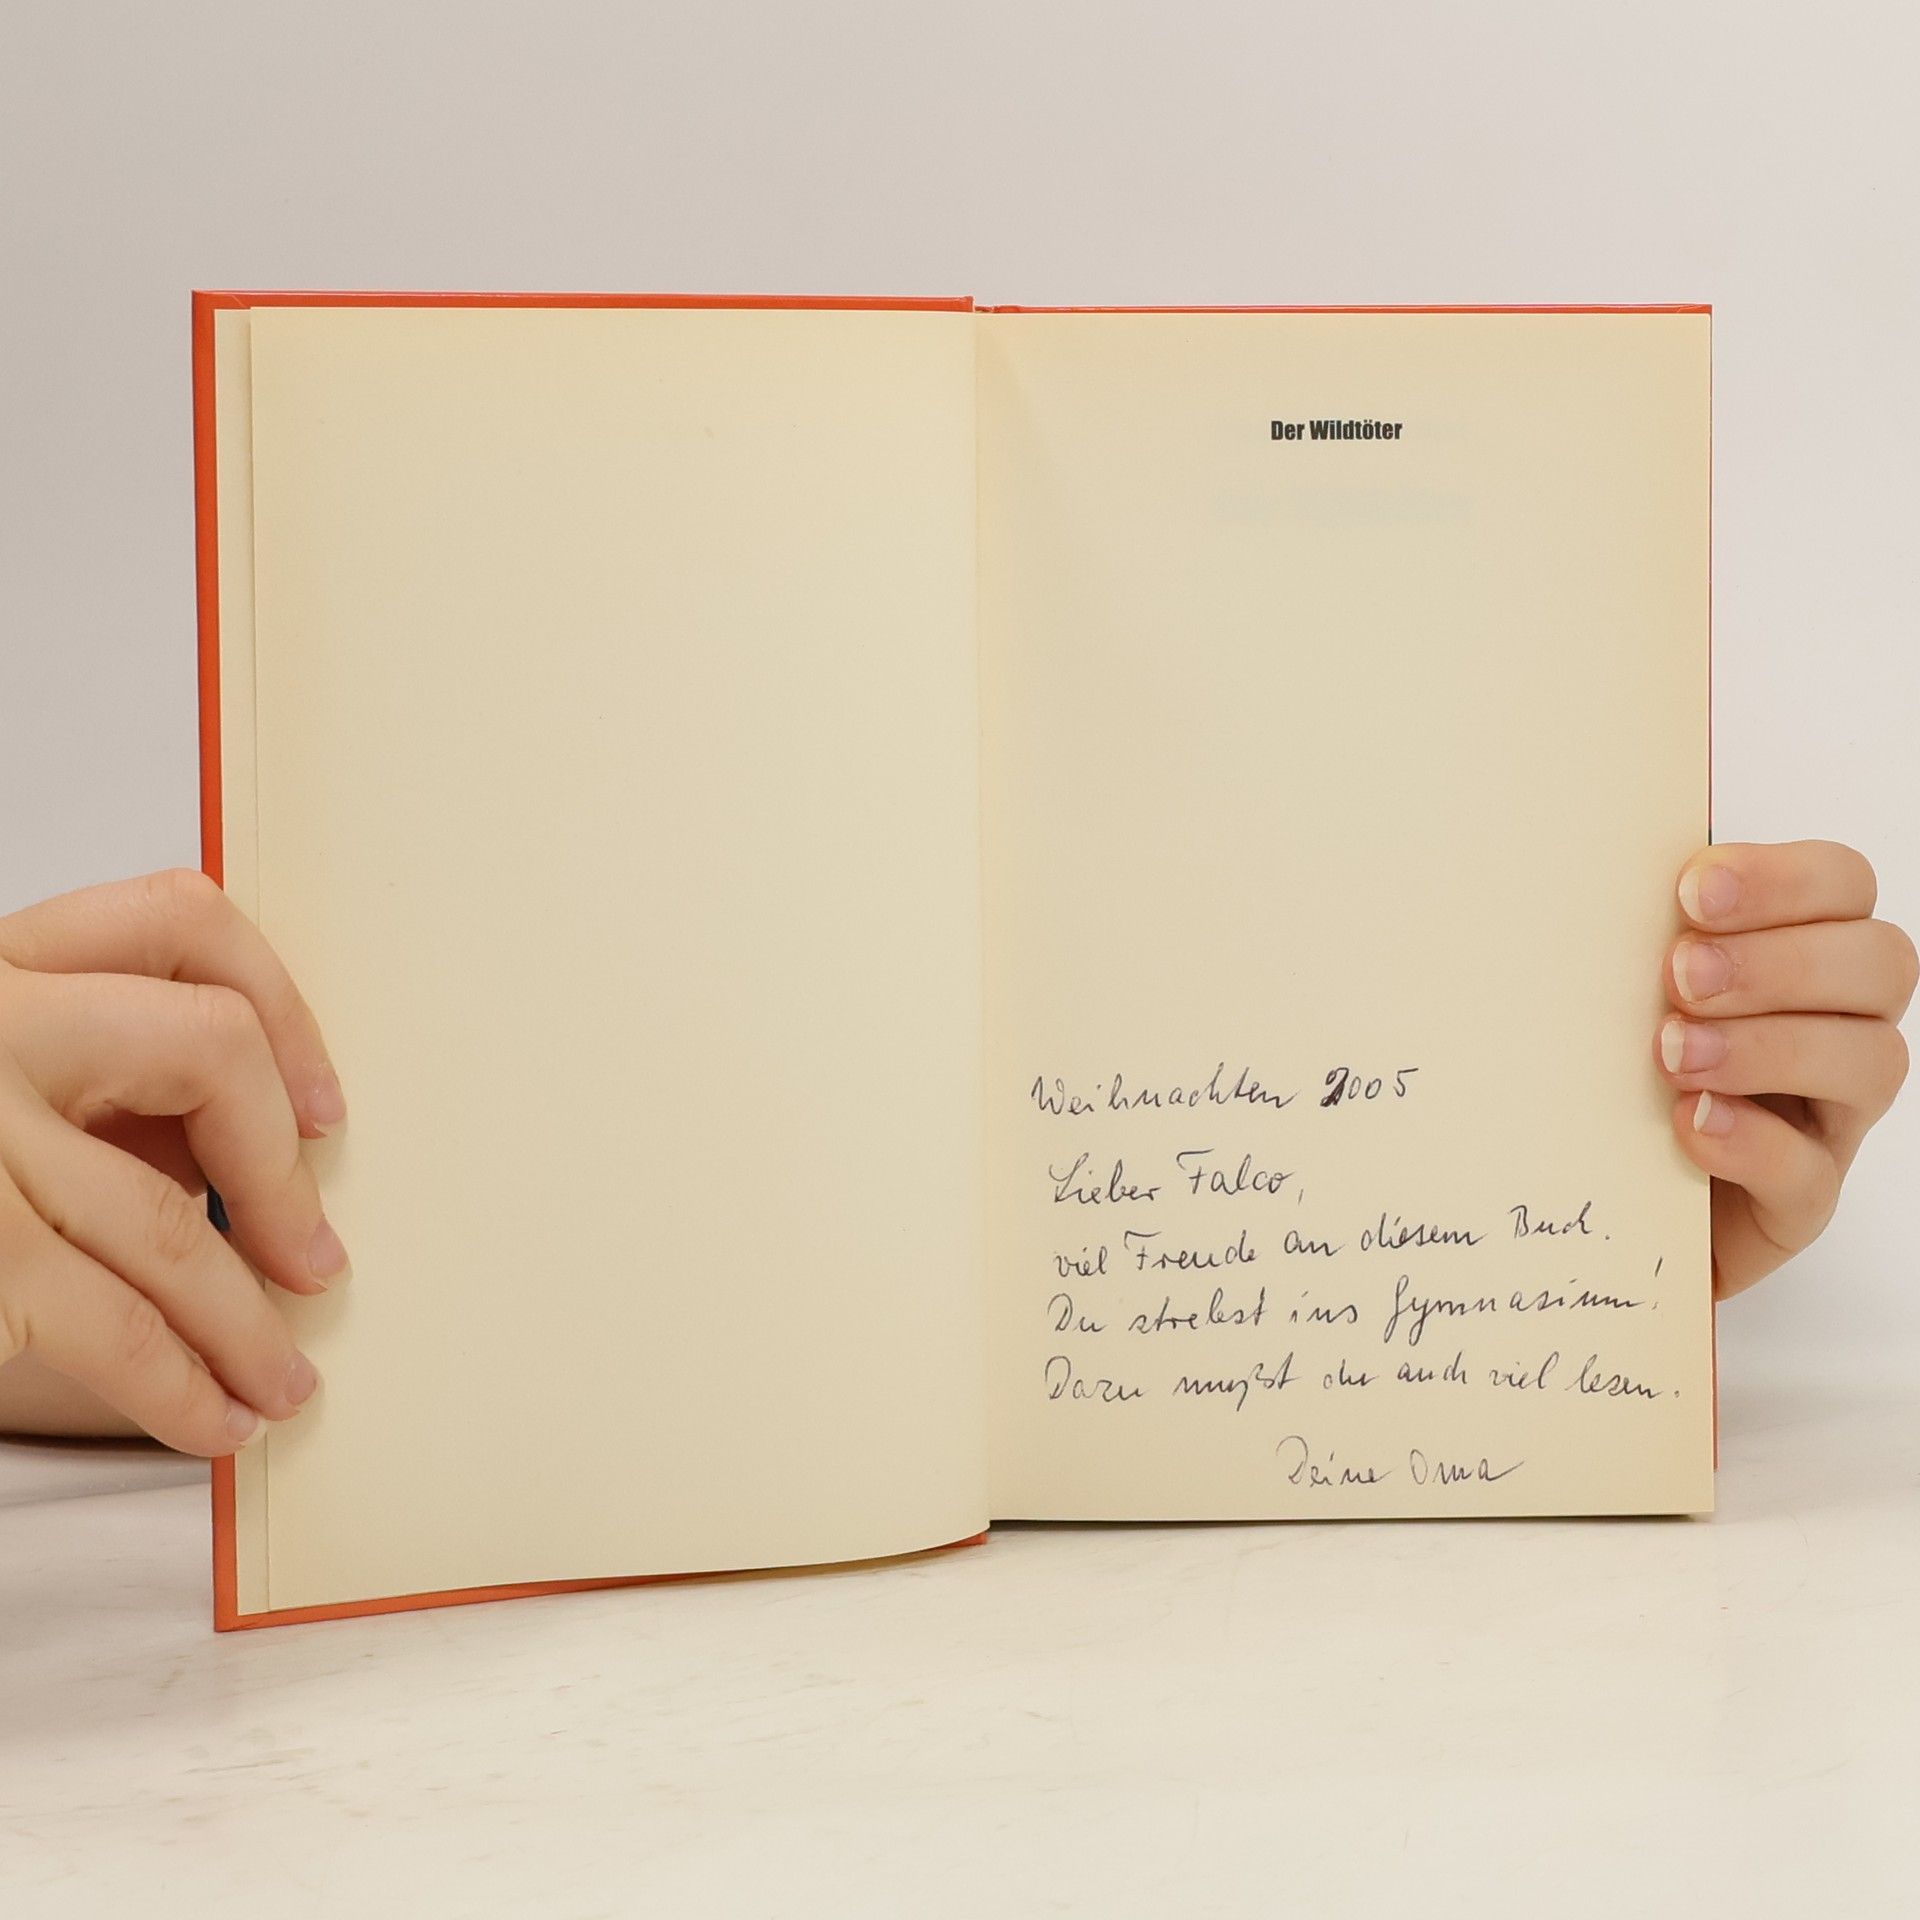 Der Wildtöter
Weihnachten 2005
Lieber Falco,
viel Freude an diesem Buch.
Du strebst ins Gymnasium!
Dazu mußt du auch viel lesen.
Deine Oma